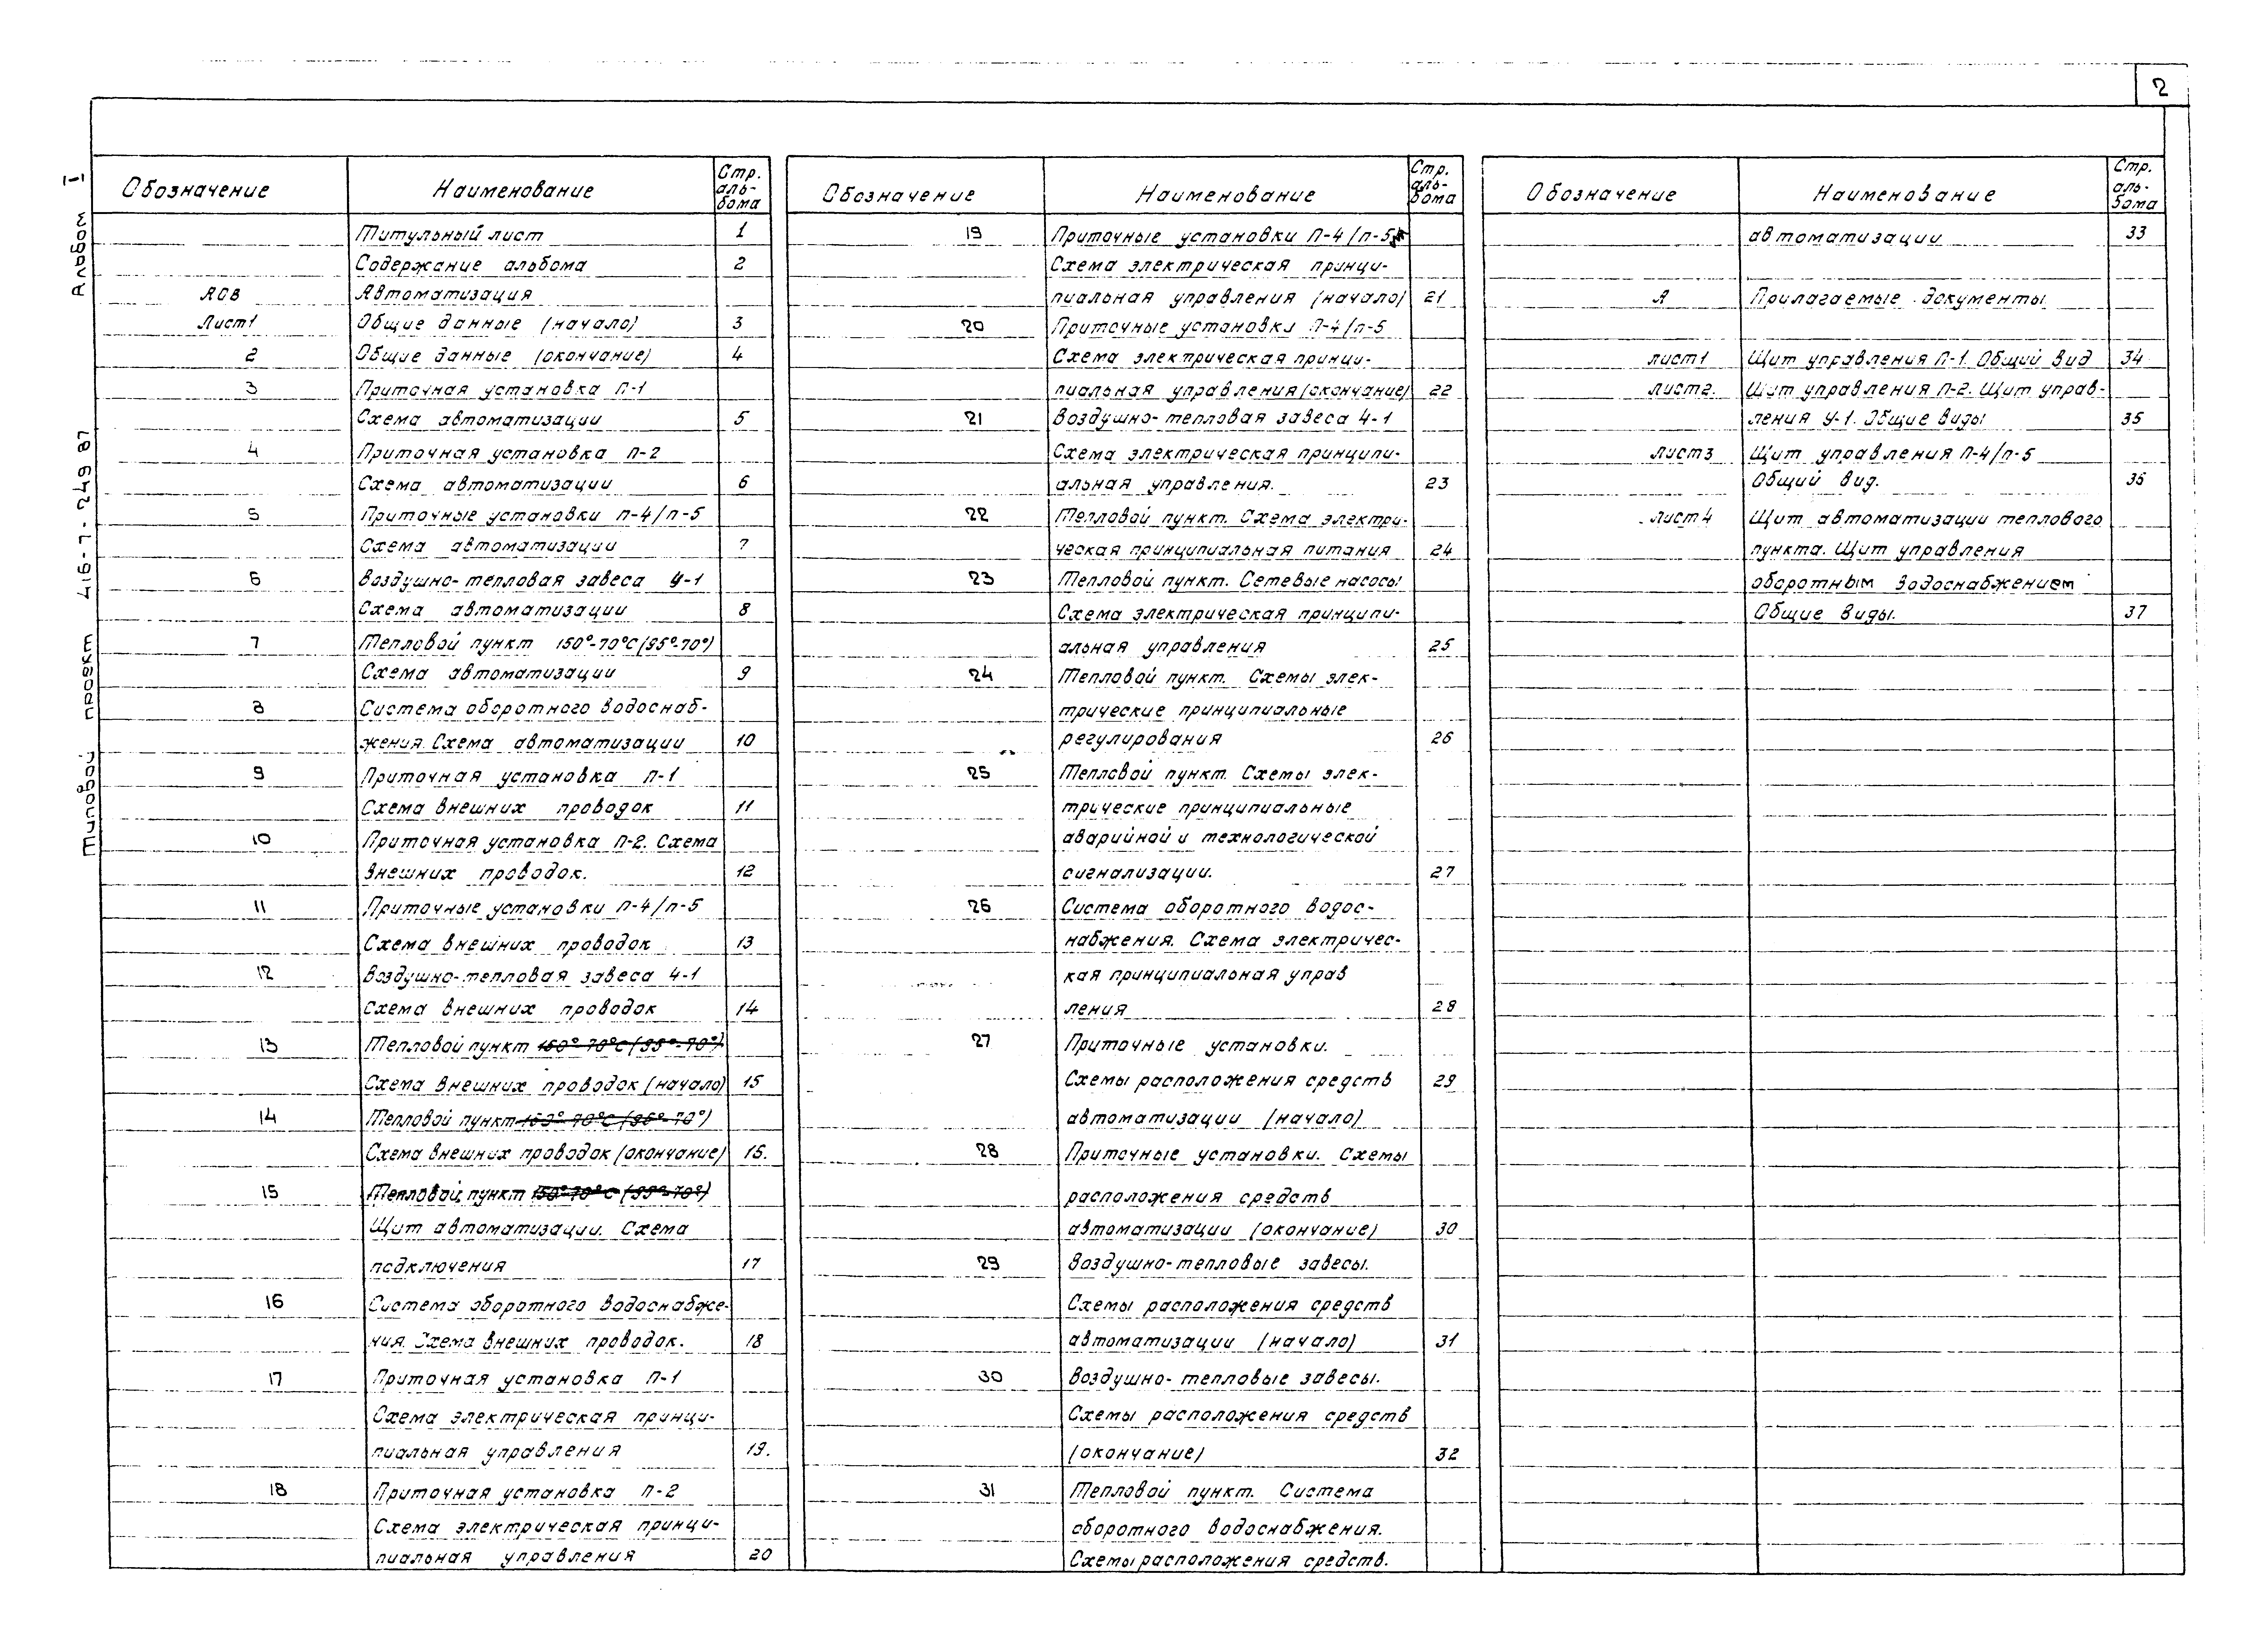 2
Альбом I
Типовой проект 416-7-249 87
Обозначение Наименование Стр. аль-бома
Титульный лист 1
Содержание альбома 2
АОВ Автоматизация
Лист1 Общие данные (начало) 3
2 Общие данные (окончание) 4
3 Приточная установка П-1
Схема автоматизации 5
4 Приточная установка П-2
Схема автоматизации 6
5 Приточные установки П-4/П-5
Схема автоматизации 7
6 Воздушно-тепловая завеса У-1
Схема автоматизации 8
7 Тепловой пункт 150°-70°С (95°-70°)
Схема автоматизации 9
8 Система оборотного водоснаб-
жения. Схема автоматизации 10
9 Приточная установка П-1
Схема внешних проводок 11
10 Приточная установка П-2. Схема
внешних проводок. 12
11 Приточные установки П-4/П-5
Схема внешних проводок 13
12 Воздушно-тепловая завеса У-1
Схема внешних проводок 14
13 Тепловой пункт 150°-70°С (95°-70°)
Схема внешних проводок (начало) 15
14 Тепловой пункт 150°-70°С (95°-70°)
Схема внешних проводок (окончание) 16.
15 Тепловой пункт 150°-70°С (95°-70°)
Щит автоматизации. Схема
подключения 17
16 Система оборотного водоснабже-
ния. Схема внешних проводок. 18
17 Приточная установка П-1
Схема электрическая принци-
пиальная управления 19.
18 Приточная установка П-2
Схема электрическая принци-
пиальная управления 20
Обозначение Наименование Стр. аль-бома
19 Приточные установки П-4/П-5
Схема электрическая принци-
пиальная управления (начало) 21
20 Приточные установки П-4/П-5
Схема электрическая принци-
пиальная управления (окончание) 22
21 Воздушно-тепловая завеса У-1
Схема электрическая принципи-
альная управления. 23
22 Тепловой пункт. Схема электри-
ческая принципиальная питания 24
23 Тепловой пункт. Сетевые насосы
Схема электрическая принципи-
альная управления 25
24 Тепловой пункт. Схемы элек-
трические принципиальные
регулирования 26
25 Тепловой пункт. Схемы элек-
трические принципиальные
аварийной и технологической
сигнализации. 27
26 Система оборотного водос-
набжения. Схема электричес-
кая принципиальная управ
ления 28
27 Приточные установки.
Схемы расположения средств 29
автоматизации (начало)
28 Приточные установки. Схемы
расположения средств
автоматизации (окончание) 30
29 Воздушно-тепловые завесы.
Схемы расположения средств
автоматизации (начало) 31
30 Воздушно-тепловые завесы.
Схемы расположения средств
(окончание) 32
31 Тепловой пункт. Система
оборотного водоснабжения.
Схемы расположения средств.
Обозначение Наименование Стр. аль-бома
автоматизации 33
А Прилагаемые документы
лист1 Щит управления П-1. Общий вид 34
лист2. Щит управления П-2. Щит управ-
ления У-1. Общие виды 35
лист3 Щит управления П-4/П-5
Общий вид. 36
лист4 Щит автоматизации теплового
пункта. Щит управления
оборотным водоснабжением
Общие виды. 37